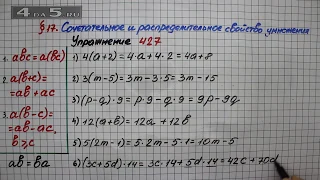 4 ДА 5.RU
§17. Сочетательное и распределительное свойство умножения
Упражнение 427
1. abc = a(bc)
2. a(b+c)=
=ab+ac
3. a(b-c)=
=ab-ac,
b>c
ab=ba
1) 4(a+2) = 4·a + 4·2 = 4a+8
2) 3(m-5) = 3m - 3·5 = 3m - 15
3) (p-q)·9 = p·9 - q·9 = 9p - 9q
4) 12(a+b) = 12a + 12b
5) 5(2m-1) = 5·2m - 5·1 = 10m - 5
6) (3c+5d)·14 = 3c·14 + 5d·14 = 42c + 70d